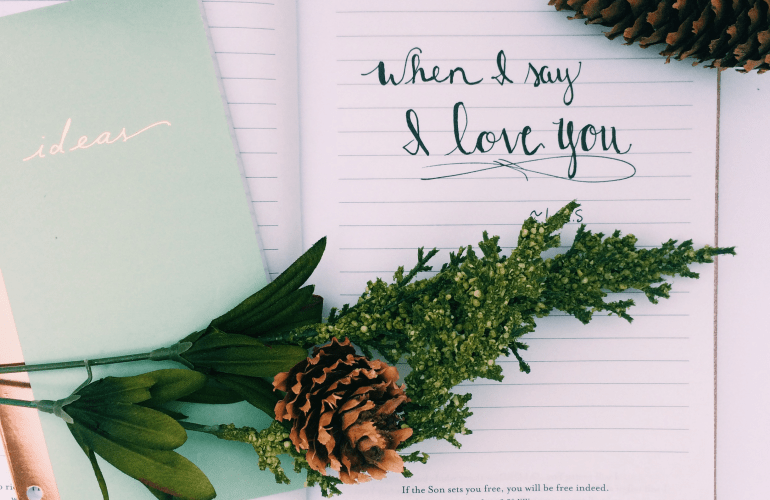 ideas
When I say
I love You
If the Son sets you free, you will be free indeed.